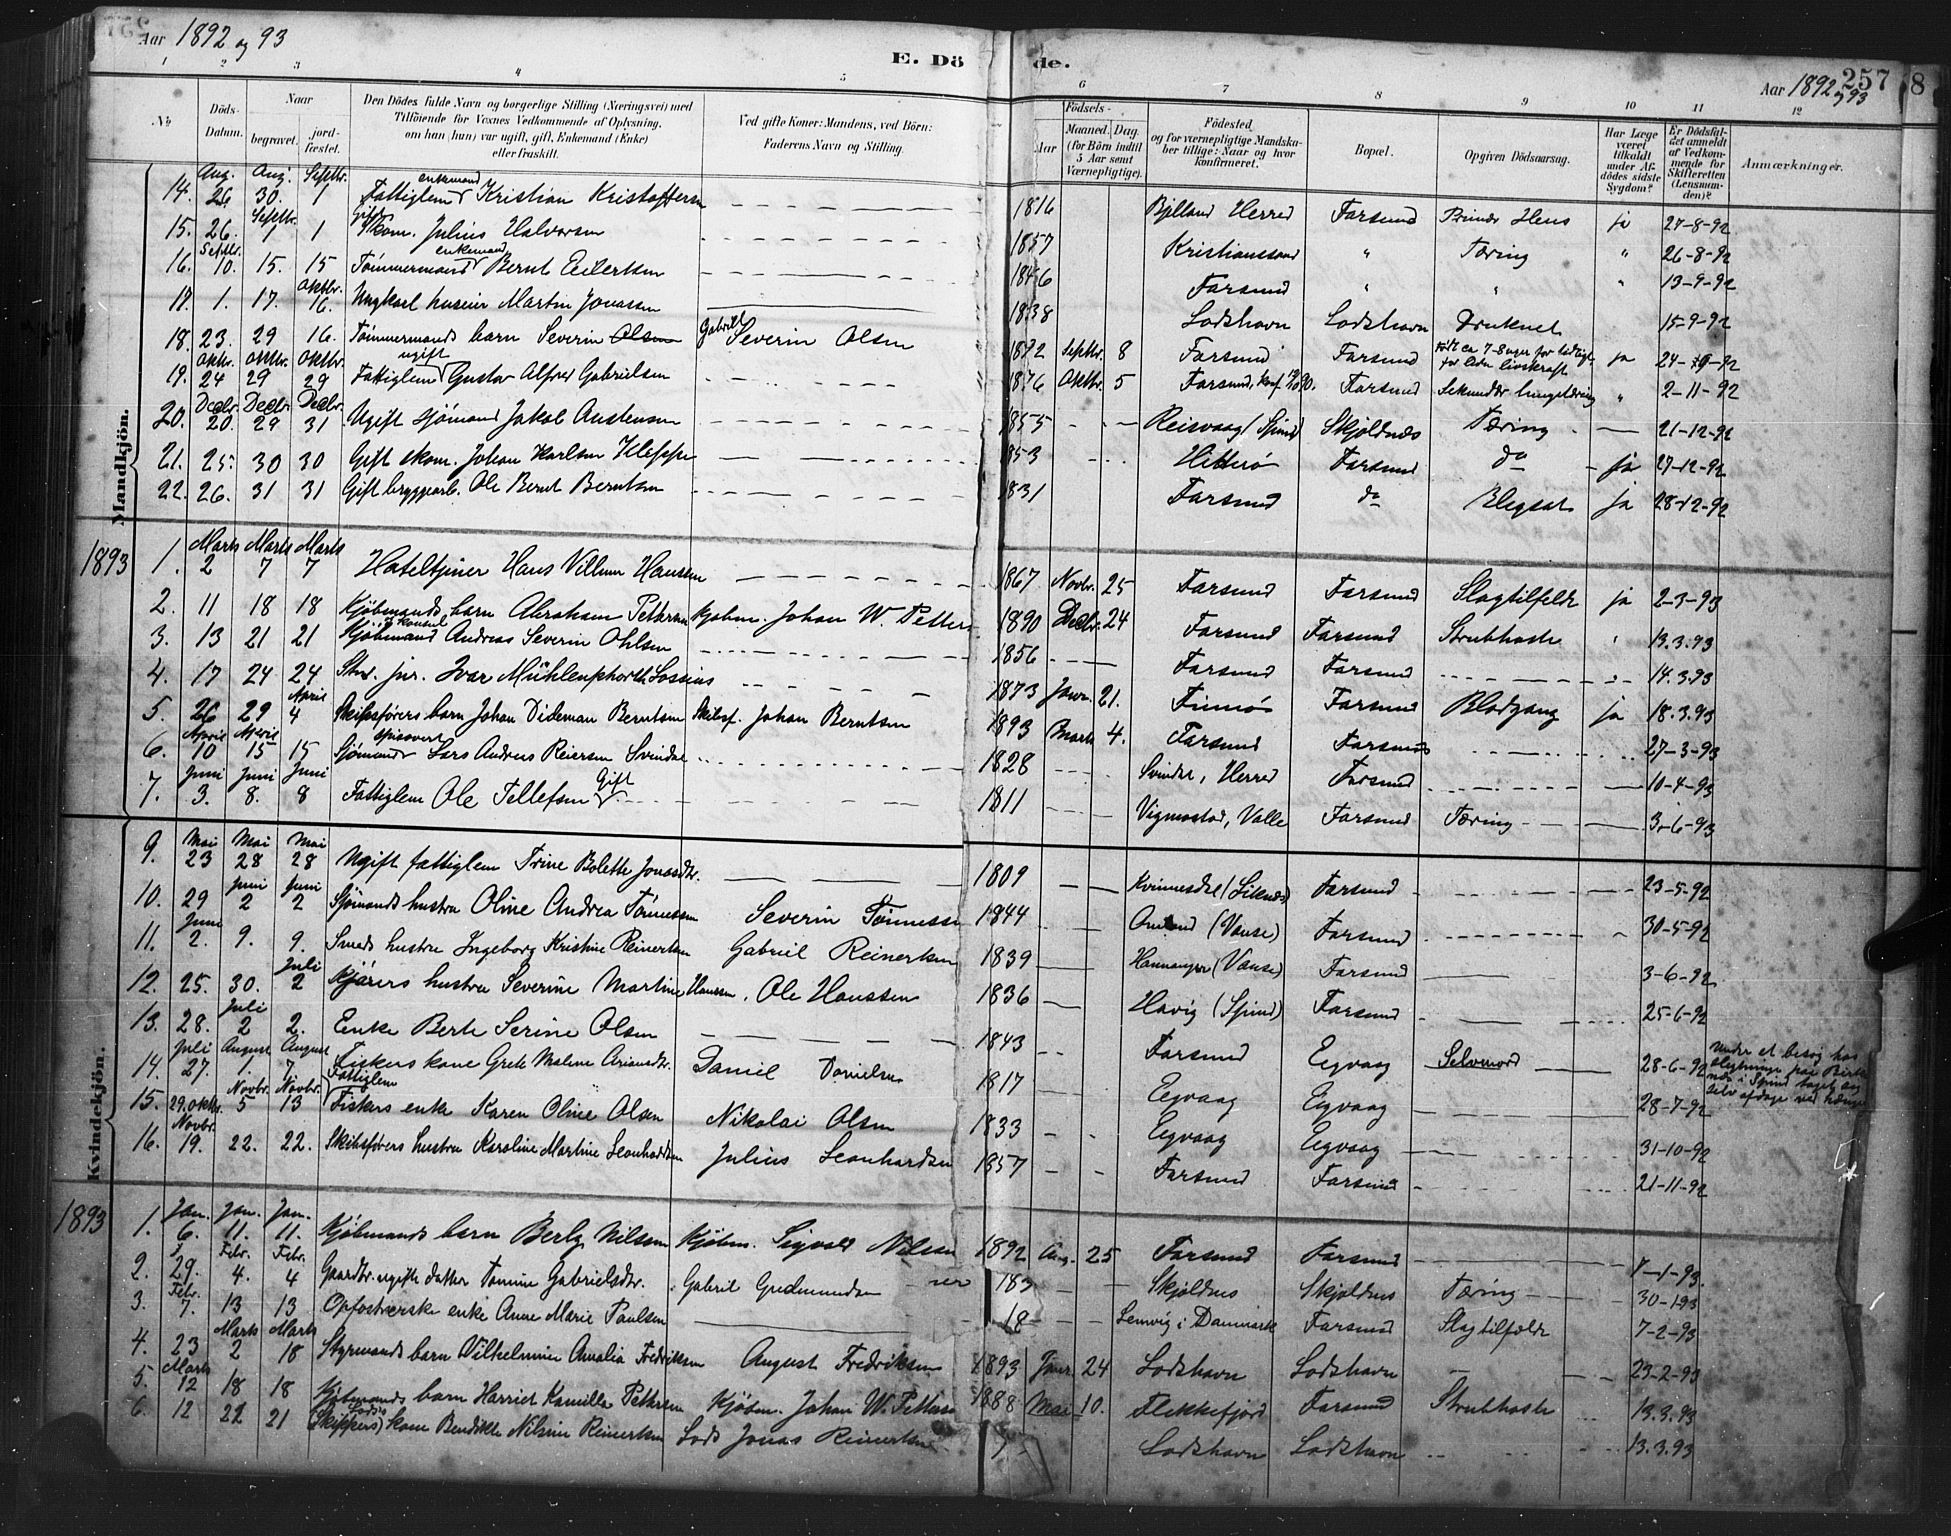 Aar 1892 og 93
E. Döde.
Aar 1892 og 93
257
8
1 2 3 4 5 6 7 8 9 10 11 12
№
Döds-Datum.
Naar
begravet.
jord-fæstet.
Den Dödes fulde Navn og borgerlige Stilling (Næringsvei) med Tilföiende for Voxnes Vedkommende af Oplysning, om han (hun) var ugift, gift, Enkemand (Enke) eller fraskilt.
Ved gifte Koner: Mandens, ved Börn: Faderens Navn og Stilling.
Födsels-
Aar
Maaned. Dag.
(for Börn indtil 5 Aar samt Værnepligtige).
Födested, og for værnepligtige Mandskaber tillige: Naar og hvor konfirmeret.
Bopæl.
Opgiven Dödsaarsag.
Har Læge været tilkaldt under Afdödes sidste Sygdom?
Er Dödsfaldet anmeldt af Vedkommende for Skifteretten (Lensmanden)?
Anmærkninger.
Mandkjön.
14. Aug. 26 Aug. 30. Septbr. 1 Fattiglem enkemand Kristian Kristoffersen 1816 Bjelland Herred Farsund ja 27-8-92
15. 26. Septbr. 1 1 Gift skom. Julius Halvorsen 1857 Kristianssand " Tæring " 26-8-92
16. Septbr. 10. 15. 15 Tømmermand enkemand Bernt Eilertsen 1846 Farsund " " " 13-9-92
17. 1. 17. Oktbr. 16. Ungkarl huseier Martin Jonassen 1838 Lodshavn Lodshavn Druknet 15-9-92
18. 23. 29 16. Tømmermands barn Severin Olsen Gabriel Severin Olsen 1892 Septbr. 8 Farsund Farsund Født ca 7-8 uger for tidligt, for liden livskraft ja 24-9-92
19. Oktbr. 24 Oktbr. 29 Oktbr. 29 Fattiglem ugift Gustav Alfred Gabrielsen 1876 Oktbr. 5 Farsund, konf. Farsund Sekundær lungetæring " 2-11-92
20. Decbr. 20. Decbr. 29 Decbr. 31 Ugift sjømand Jakob Austensen 1855 Reisvaag (Spind) Skjoldnæs Tæring 21-12-92
21. 25. 30 30 Gift skom. Johan Karlsen Kleppe 1853 Hitterø Farsund do ja 27-12-92
22. 26. 31 31 Gift bryggearb. Ole Bernt Berntsen 1831 Farsund do Blegsot ja 28-12-92
1893 1. Marts 2 Marts 7 Marts 7 Hoteltjener Hans Villum Hanssen 1867 Novbr. 25 Farsund Farsund Slagtilfelde ja 2-3-93
2. 11 18 18 Kjøbmands barn Abraham Pettersen Kjøbm. Johan W. Petters 1890 Decbr. 24 Farsund Farsund Strubhoste " 13.3.93
3. 13 21 21 Kjøbmand & konsul Andreas Severin Ohlsen 1856 Farsund Farsund 14.3.93
4. 17 24 24 Stud. jur. Ivar Mühlenphorth Lossius 1873 Janr. 21. Finnøs Farsund Blodgang ja 18.3.93
5. 26 29 April 4 Skibsførers barn Johan Dideman Berntsen Skibsf. Johan Berntsen 1893 Marts 4. Farsund Farsund 27-3-93
6. April 10 April 15 15 Sjømand Lars Andreas Reiersen Svindal 1828 Svindal, Herred Farsund 10-4-93
7. Juni 3. Juni 8. Juni 8 Fattiglem Ole Tellefsen Gift 1811 Vigmostad, Valle Farsund Tæring 3-6-93
Kvindekjön.
9. Mai 23 Mai 28 Mai 28 Ugift fattiglem Trine Bolette Jonasdtr. 1809 Kvinnesdal (Liknes) Farsund 23-5-92
10. 29 Juni 2 Juni 2 Sjømands hustru Oline Andrea Tønnessen Severin Tønnessen 1844 (Vanse) Farsund 30-5-92
11. Juni 2. 9. 9. Smeds hustru Ingeborg Kristine Reinertsen Gabriel Reinertsen 1839 (Vanse) Farsund 3-6-92
12. 25. 30. Juli 2 Kjørers hustru Severine Martine Hanssen, Ole Hanssen 1836 Havig (Spind) Farsund 25-6-92
13. 28. Juli 2 2. Enke Berte Serine Olsen 1843 Farsund Eegvaag Selvmord 28-6-92 Under et besøg hos slegtninge paa i Spind taget sig selv afdage ved hænge
14. Juli 27. August 1. August 7 Fiskers kone Grete Malene Ariansdtr. Daniel Danielsen 1817 Eegvaag Eegvaag 28-7-92
15. 29. Oktbr. Novbr. 5 Novbr. 13 Fattiglem Fiskers enke Karen Oline Olsen Nikolai Olsen 1833 Eegvaag Eegvaag 31-10-92
16. Novbr. 19. 22. 22. Skibsførers hustru Karoline Martine Leonhardsen Julius Leonhardsen 1857 Farsund Farsund 21-11-92
1893 1. Jan. 6. Jan. 11. Jan. 11. Kjøbmands barn Berly Nilssen Kjøbm. Sigvald Nilsen 1892 Aug. 25 Farsund Farsund 7-1-93.
2. 29. Febr. 4. Febr. 4 Gaardbr. ugifte datter Tomine Gabrielsdtr. Gabriel Gudmundsen 183 Skjoldnes Skjoldnes Tæring 30-1-93
3. Febr. 7. 13 13 Opfostrerske enke Anne Marie Paulsen 18 Lemvig i Danmark Farsund Slagtilfælde 7-2-93
4. 23 Marts 2 Marts 18 Styrmands barn Vilhelmine Amalia Fredriksen August Fredriksen 1893 Janr. 24 Lodshavn Lodshavn 23-2-93
5. Marts 12 18 18 Kjøbmands barn Harriet Kamilla Pettersen Kjøbm. Johan W. Pettersen 1888 Mai 10. Flekkefjord Farsund Strubhoste 13.3.93
6. 12 22 21 (Skippers) Lods's kone Bendikte Nilsine Reinertsen Lods Jonas Reinertsen Lodshavn Lodshavn 13.3.93